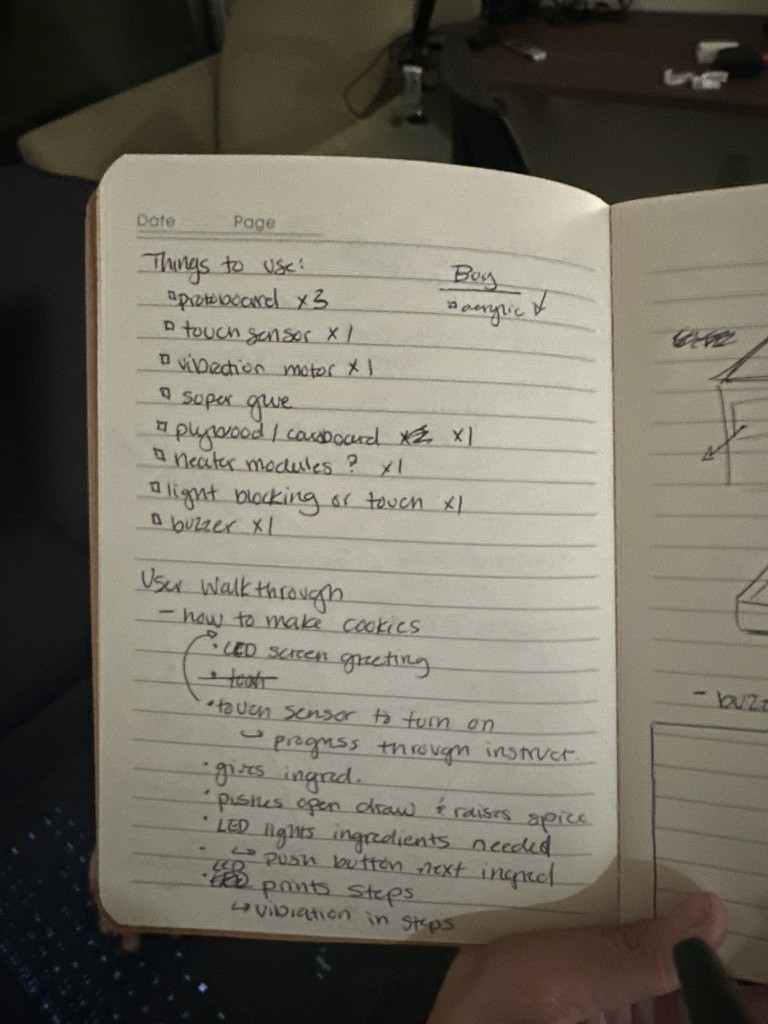 Date Page
Things to use:
protoboard x3
touch sensor x1
vibration motor x1
super glue
plywood / cardboard x1
heater modules ? x1
light blocking or touch x1
buzzer x1
Buy
acrylic
User Walkthrough
- how to make cookies
• LED screen greeting
• touch sensor to turn on
↳ progress through instruct.
• gives ingred.
• pushes open draw & raises spice
• LED lights ingredients needed
↳ push button next ingred
• LED prints steps
↳ vibration in steps
- buzz